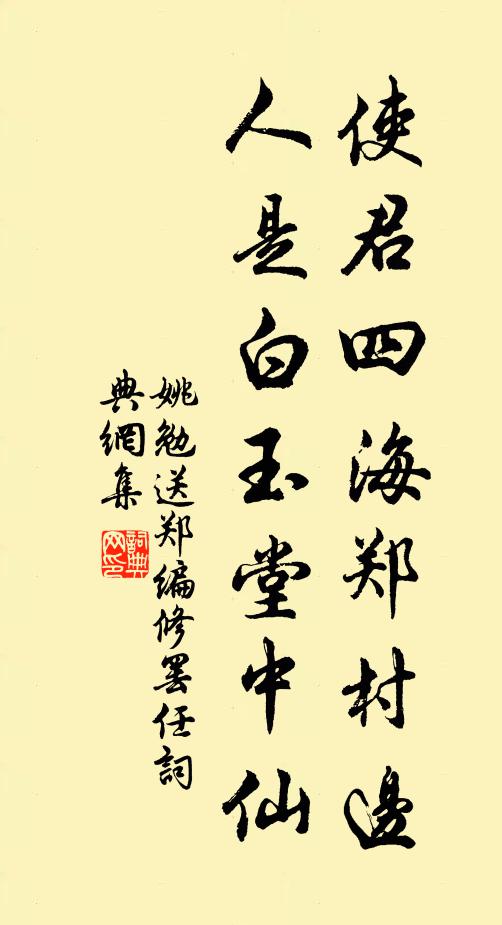 使君四海郑村邊
人是白玉堂中仙
姚勉送郑编修罢任詞
典網集
詞典
网印